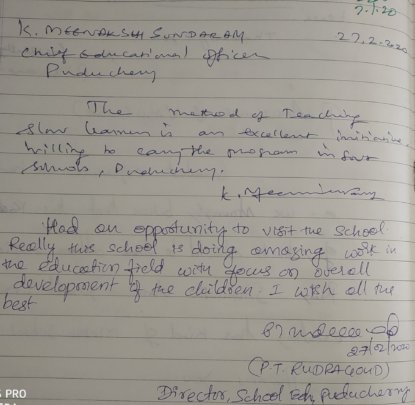 7.1.20
K. MEENAKSHI SUNDARAM 27.2.2020
Chief Educational Officer
Puducherry
The method of Teaching
Slow learners is an excellent initiative.
Willing to carry the program in our
Schools, Puducherry.
Had an opportunity to visit the School.
Really this school is doing amazing work in
the education field with focus on overall
development of the children. I wish all the
best
27/02/2020
(P.T. RUDRA GOUD)
Director, School Edn, Puducherry
PRO